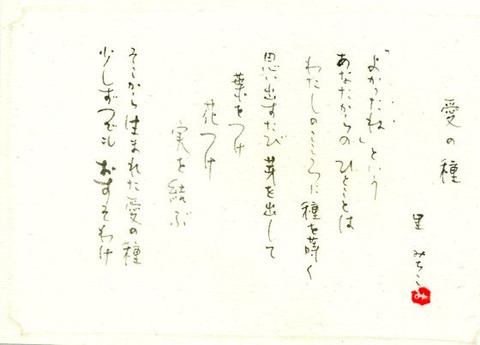 愛の種
里 みちこ
み
「よかったね」という
あなたからの ひとことは
わたしのこころに 種を蒔く
思い出すたび 芽を出して
葉をつけ
花つけ
実を結ぶ
そこから生まれた愛の種
少しずつでも おすそわけ